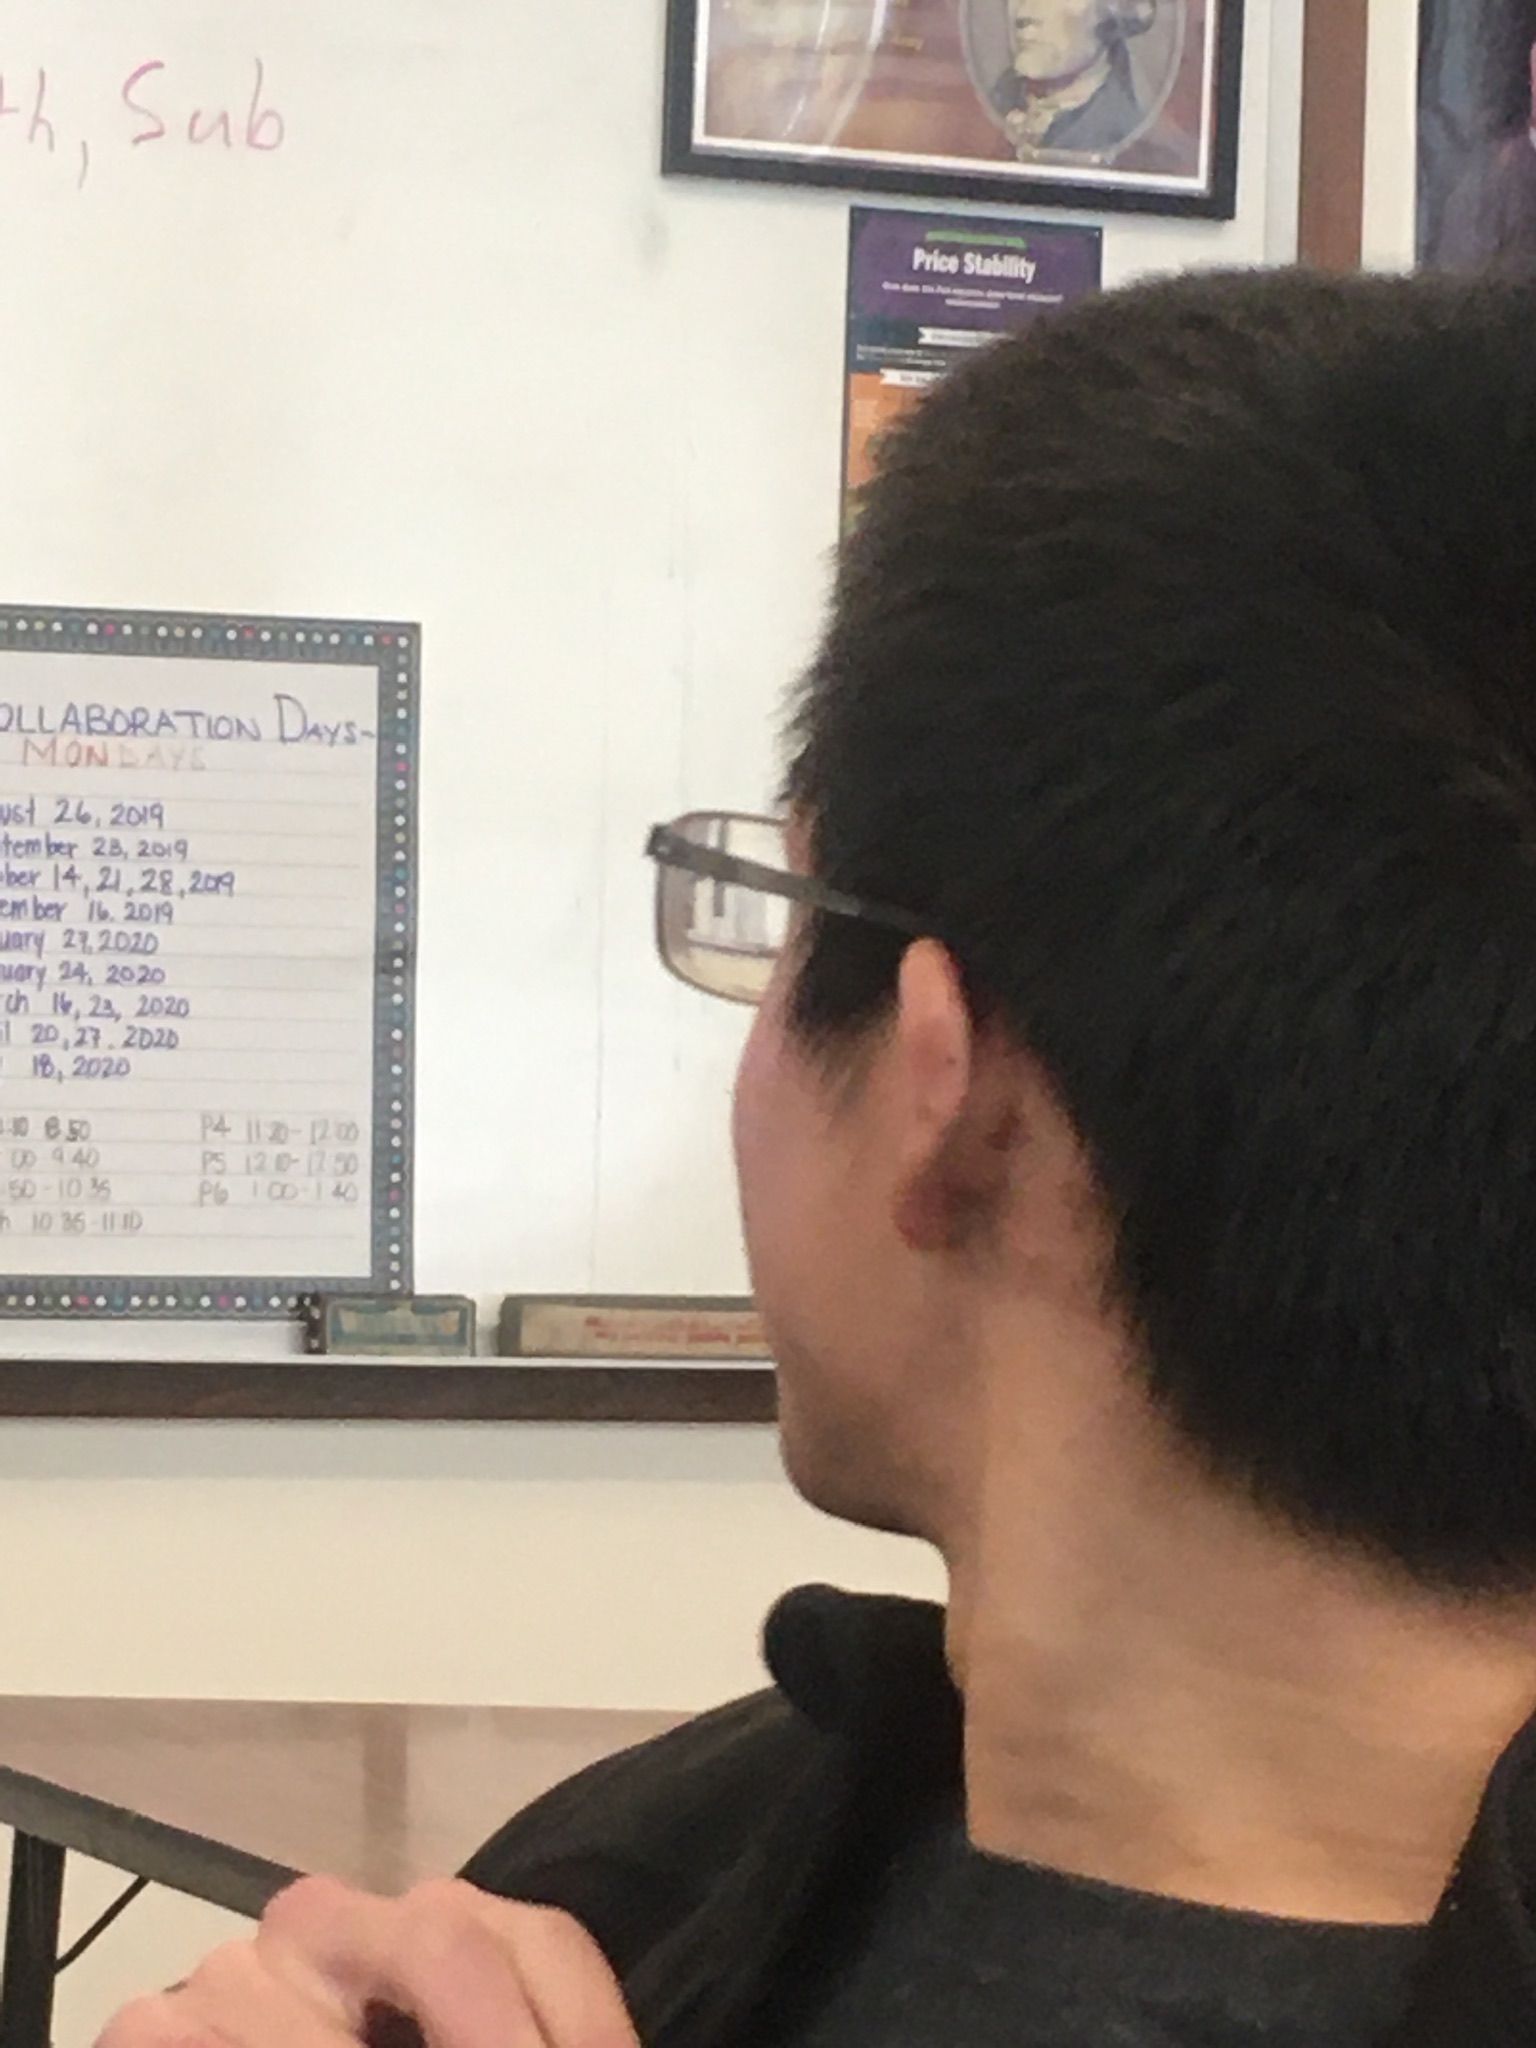 th, Sub
Price Stability
OLLABORATION DAYS-
MONDAYS
ust 26, 2019
tember 23, 2019
ber 14, 21, 28, 2019
ember 16. 2019
uary 27, 2020
uary 24, 2020
ch 16, 23, 2020
il 20, 27. 2020
18, 2020
:10 8 50
00 9 40
50 - 10 35
h 10 35 - 11 10
P4 11 20 - 12 00
P5 12 10 - 12 50
P6 1 00 - 1 40